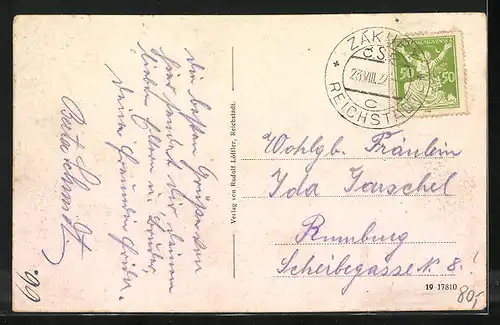 Die besten Grüße von
hier sendet dir deinen
lieben Eltern u. Bruder
deine Freundin
Berta
Verlag von Rudolf Löffler, Reichstadt.
ZÁKUPY
Č.S.
23.VIII.2
C
REICHSTADT
50 50
Wohlgb. Fräulein
Ida Jarschel
Rumburg
Scheibegasse N. 8.!
19 17810
80,-